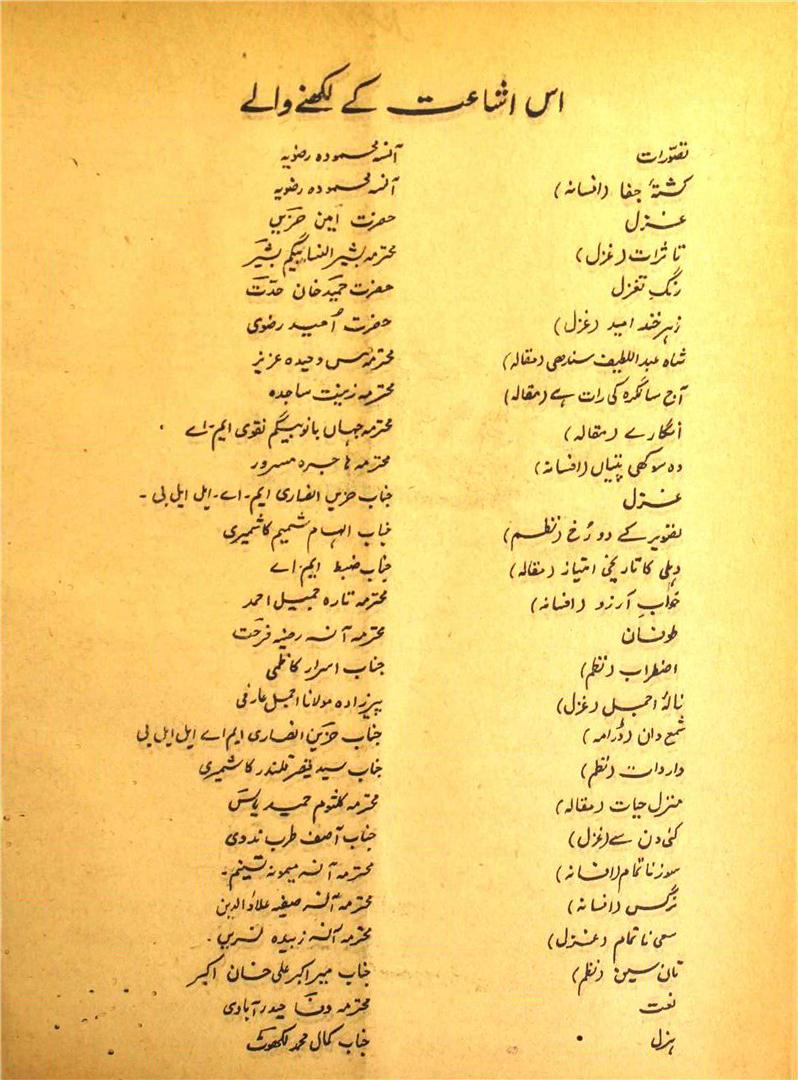 اس اشاعت کے لکھنے والے
تصورات آنسہ محمودہ رضویہ
کشتۂ جفا (افسانہ) آنسہ محمودہ رضویہ
غزل حضرت امین حزیں
تاثرات (غزل) محترمہ بشیر النسا بیگم بشیر
رنگِ تغزل حضرت حمید خان حدّت
زہر خند امید (غزل) حضرت اُمید رضوی
شاہ عبداللطیف سندھی (مقالہ) محترمہ مس وحیدہ عزیز
آج سالگرہ کی رات ہے (مقالہ) محترمہ زینت ساجدہ
انگارے (مقالہ) محترمہ جہاں بانو بیگم نقوی ایم-اے
وہ سوکھی پتیاں (افسانہ) محترمہ ہاجرہ مسرور
غزل جناب حزیں انصاری ایم-اے-ایل ایل بی -
تصویر کے دو رُخ (نظم) جناب الہام شمیم کاشمیری
دہلی کا تاریخی امتیاز (مقالہ) جناب ضبط ایم-اے
خوابِ آرزو (افسانہ) محترمہ تارہ جمیل احمد
طوفان محترمہ آنسہ رضیہ فرحت
اضطراب (نظم) جناب اسرار کاظمی
نالۂ اجمیل (غزل) پیرزادہ مولانا اجمیل عارفی
شمع دان (ڈرامہ) جناب حزیں انصاری ایم اے ایل ایل بی
واردات (نظم) جناب سید قیصر قلندر کاشمیری
منزل حیات (مقالہ) محترمہ کلثوم حمید یاس
کئی دن سے (غزل) جناب آصف طرب ندوی
سوز ناتمام (افسانہ) محترمہ آنسہ میمونہ تسنیم -
نرگس (افسانہ) محترمہ آنسہ صفیہ علاؤالدین
سعی ناتمام (غزل) محترمہ آنسہ زبیدہ نسرین -
تان سین (نظم) جناب میر اکبر علی خان اکبر
نعت محترمہ وفا حیدرآبادی
ہزل جناب کمال محمد لکھوٹ